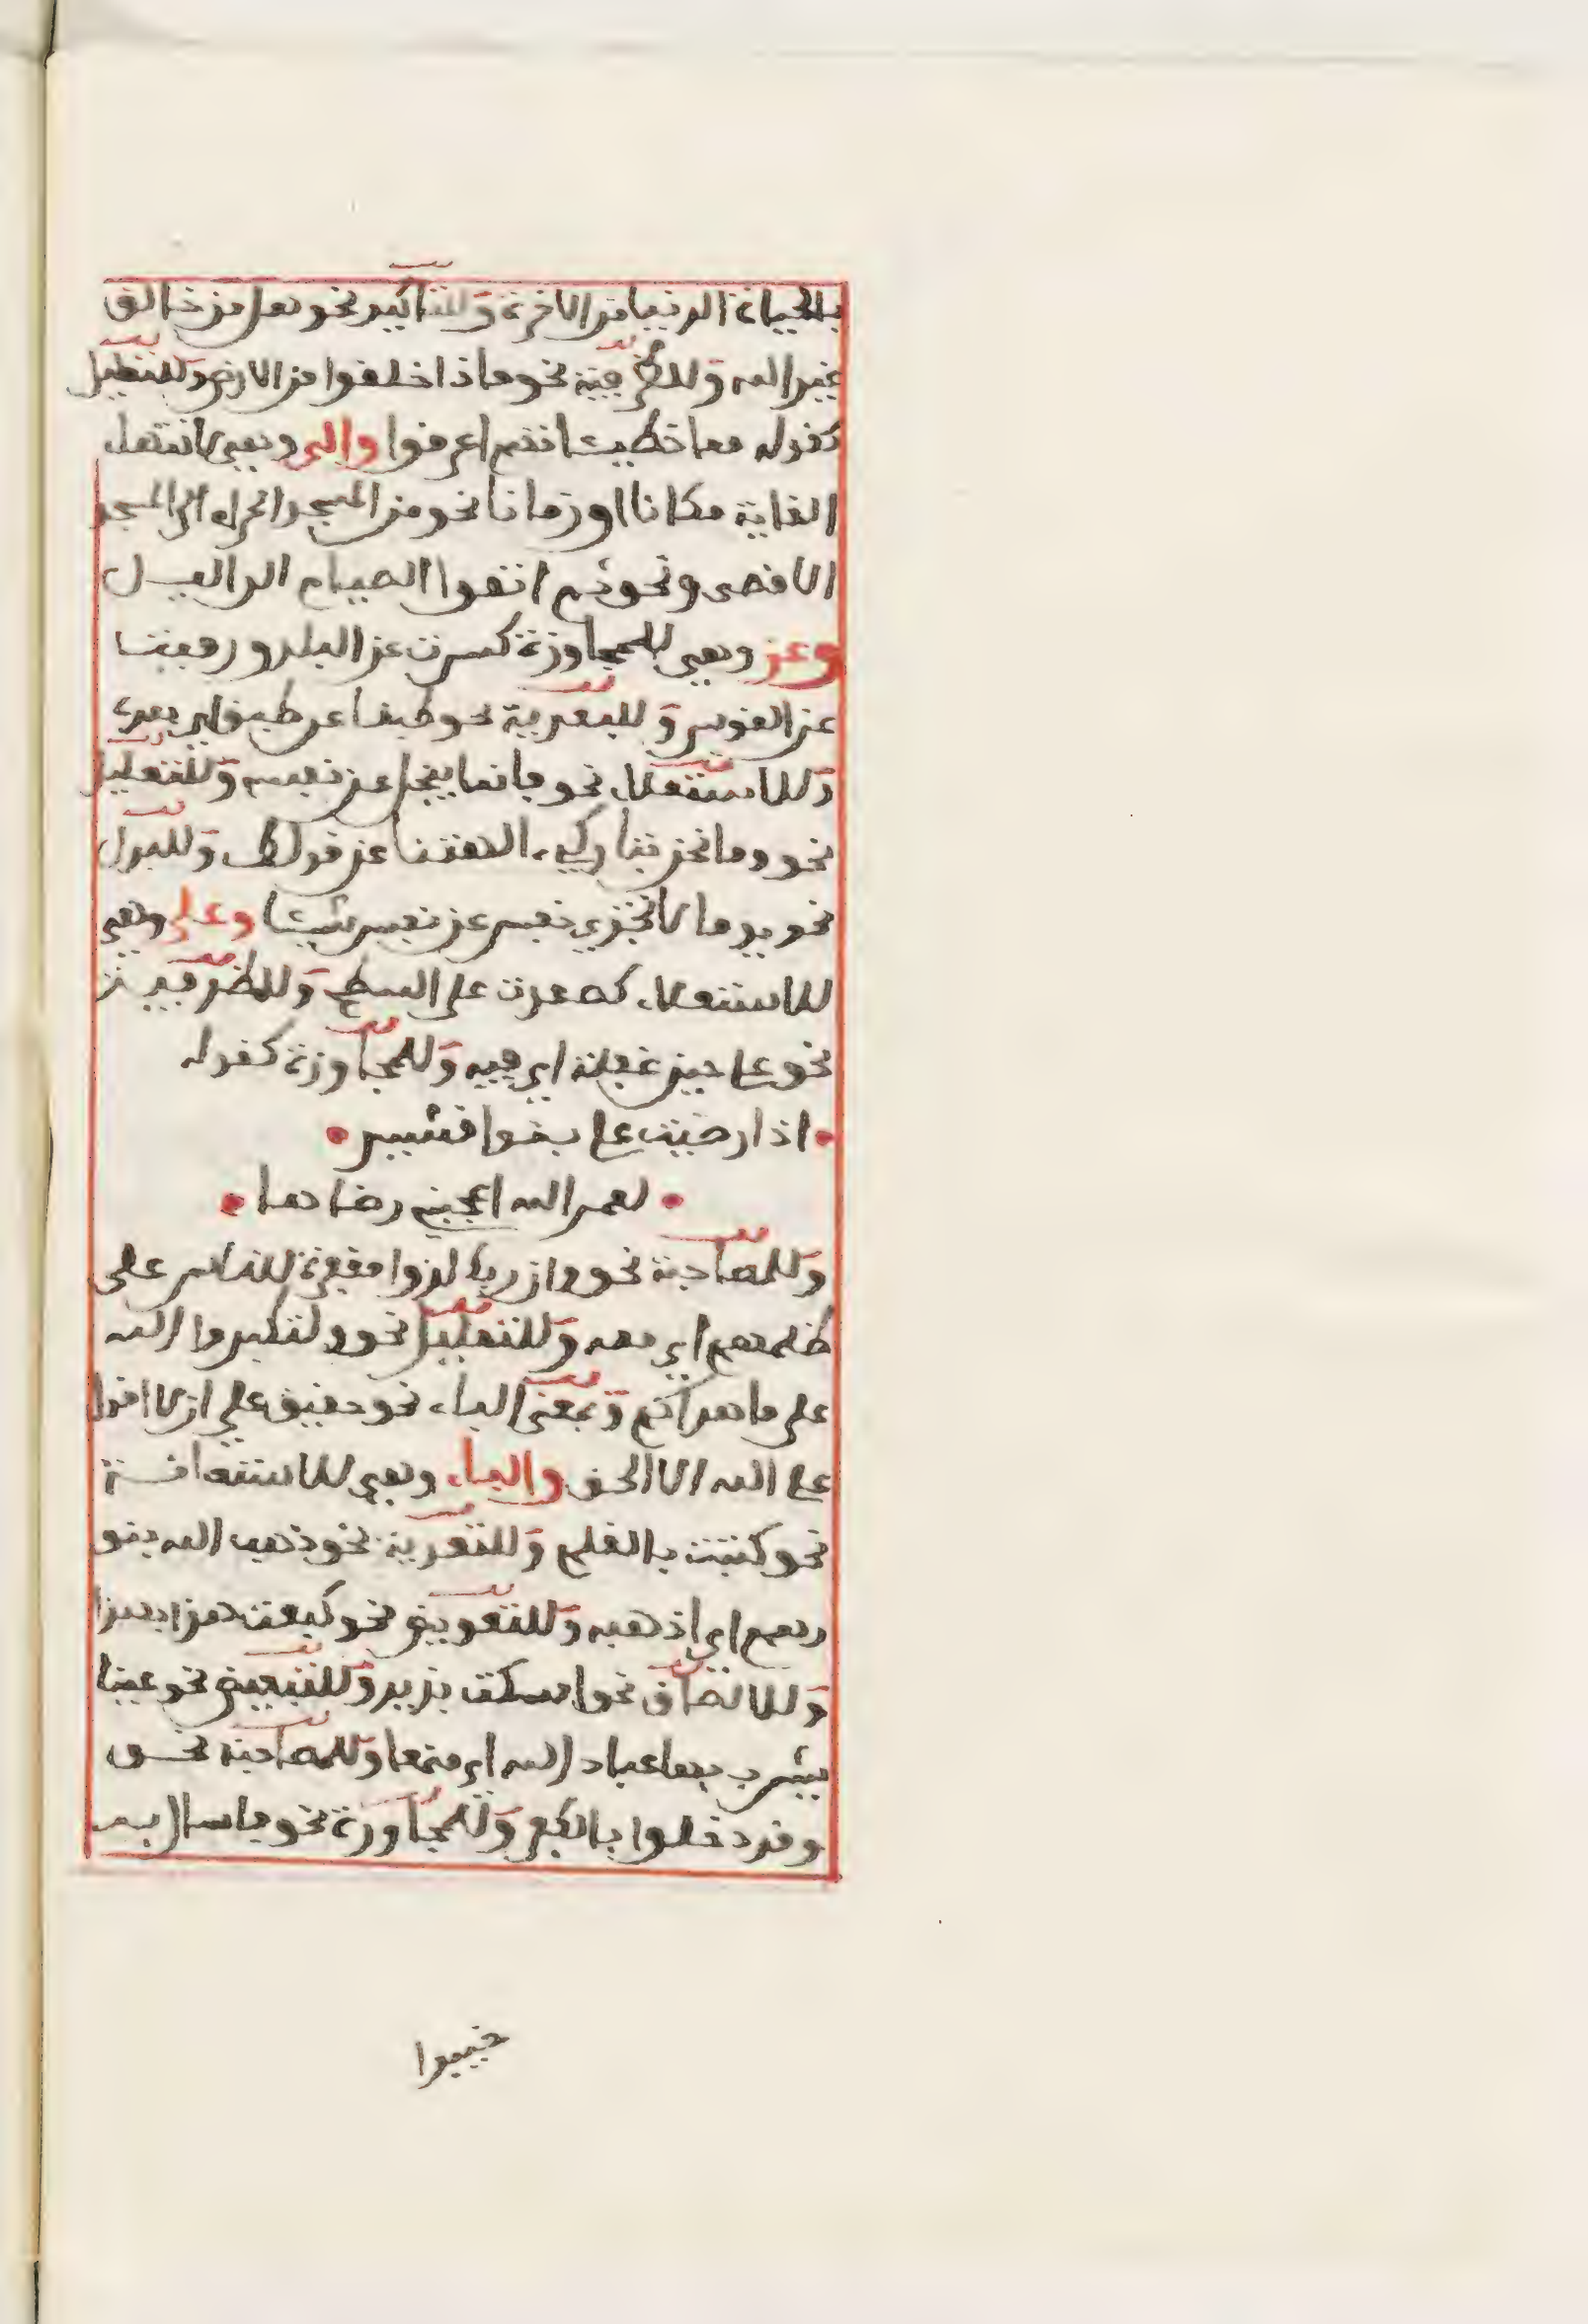 بالحياة الدنيا من الاخرة وللتاكيد نحو هل من خالق
غير الله وللظرفية نحو ماذا خلقوا من الارض وللتعليل
كقوله مما خطيئاتهم اغرقوا والى وهي لانتهاء
الغاية مكانا او زمانا نحو من المسجد الحرام الى المسجد
الاقصى ونحو ثم اتموا الصيام الى اليل
وعن وهي للمجاوزة كسرت عن البلد ورميت
عن القوس وللبعدية نحو طبقا عن طبق اي بعده
وللاستعلاء نحو فانما يبخل عن نفسه وللتعليل
نحو وما نحن بتاركي ءالهتنا عن قولك وللبدل
نحو يوما لا تجزي نفس عن نفس شيئا وعلى وهي
للاستعلاء كصعدت على السطح وللظرفية
نحو على حين غفلة اي فيه وللمجاوزة كقوله
اذا رضيت علي بنوا قشير
لعمر الله اعجبني رضاها
وللمصاحبة نحو وان ربك لذوا مغفرة للناس على
ظلمهم اي معه وللتعليل نحو ولتكبروا الله
على ما هداكم وبمعنى الباء نحو حقيق علي ان لا اقول
على الله الا الحق والباء وهي للاستعانة
نحو كتبت بالقلم وللتعدية نحو ذهب الله بنو
رهم اي اذهبه وللتعويض نحو كبعت هذا بهذا
وللالصاق نحو امسكت بزيد وللتبعيض نحو عينا
يشرب بها عباد الله اي منها وللمصاحبة نحو
وقد دخلوا بالكفر وللمجاوزة نحو فاسال به
خبيرا